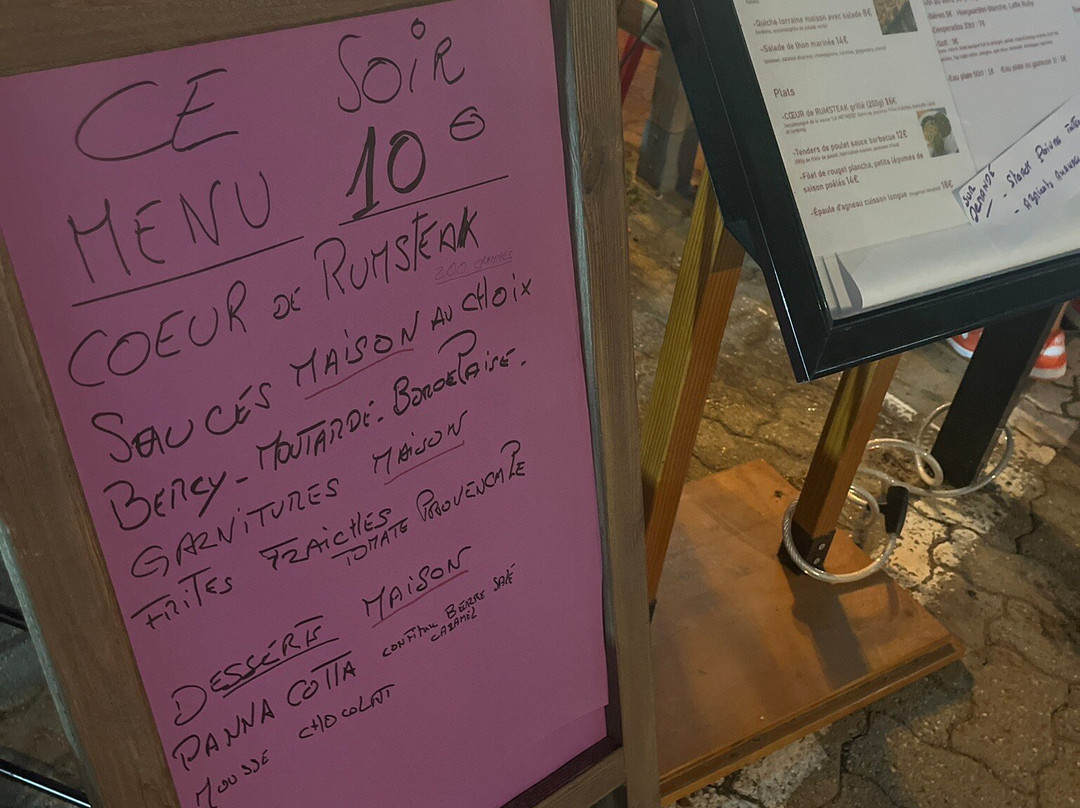 CE SOIR
MENU 10€
COEUR DE RUMSTEAK
200 GRAMMES
SAUCES MAISON AU CHOIX
BERCY - MOUTARDE - BORDELAISE.
GARNITURES MAISON
FRITES FRAICHES
TOMATE PROVENCALE
DESSERTS MAISON
PANNA COTTA CONFITURE BEURRE SALÉ
CARAMEL
MOUSSE CHOCOLAT
-Quiche lorraine maison avec salade 8€
-Salade de thon marinée 14€
Plats
-CŒUR de RUMSTEAK grillé (200g) 16€
-Tenders de poulet sauce barbecue 12€
-Filet de rouget plancha, petits légumes de
saison poêlés 14€
-Épaule d'agneau cuisson longue 18€
Desperados 33cl : 7€
-Eau plate 50cl : 1€ -Eau plate ou gazeuse 1l : 5€
SUR
DEMANDE
- STEACK